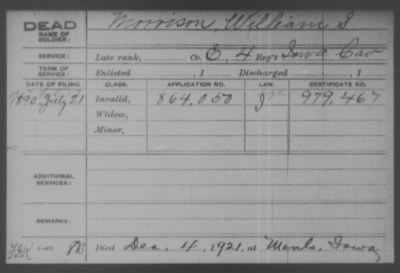 DEAD
NAME OF SOLDIER: Morrison, William S
SERVICE: Late rank, Co. E, 4 Reg't Iowa Cav
TERM OF SERVICE: Enlisted , 1 Discharged , 1
DATE OF FILING. CLASS. APPLICATION NO. LAW. CERTIFICATE NO.
1890 July 21 Invalid, 864,050 979,467
Widow,
Minor,
ADDITIONAL SERVICES:
REMARKS:
Died Dec. 4, 1921, at Iowa